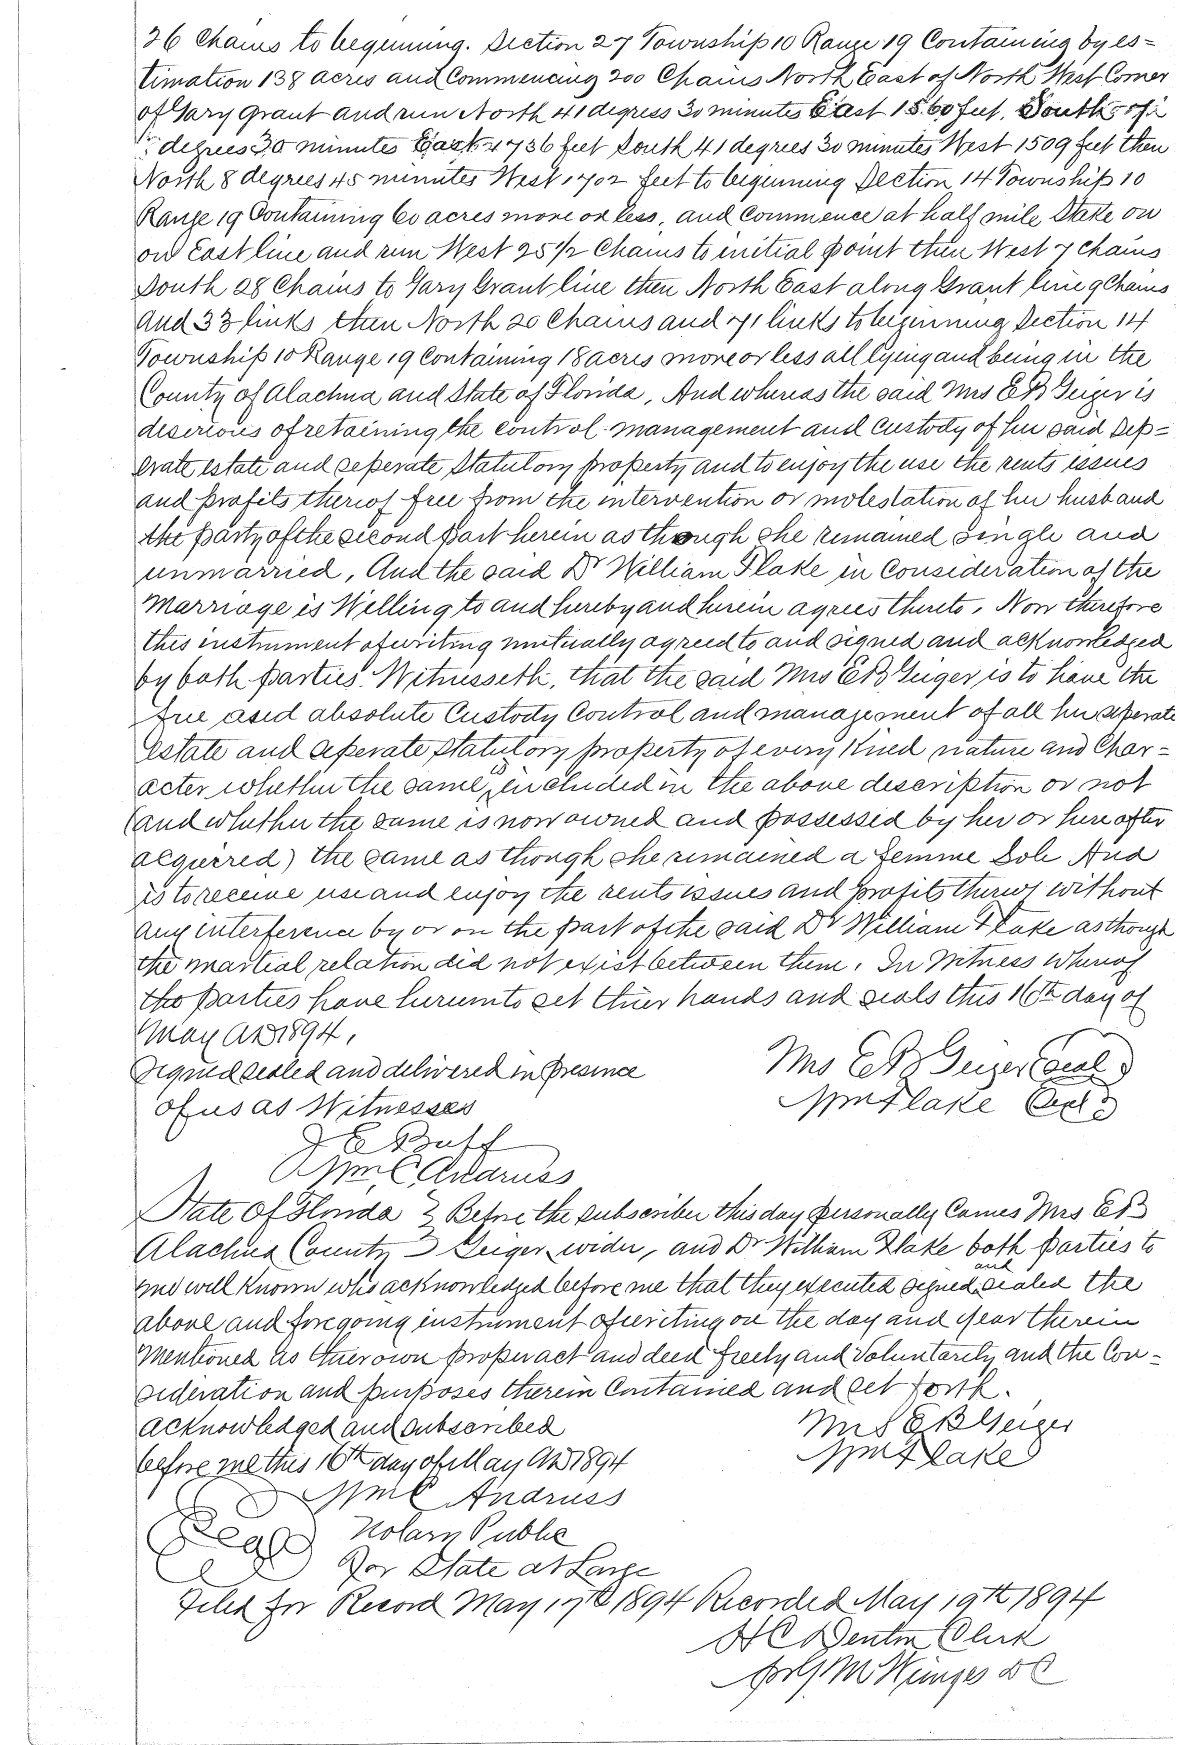 26 Chains to begenning. Section 27 Township 10 Range 19 Containing by es=
timation 138 acres and Commencing 200 Chains North East of North West Corner
of Gary Grant and run North 41 degrees 30 minutes East 1560 feet, South
degrees 30 minutes East 1736 feet South 41 degrees 30 minutes West 1509 feet then
North 8 degrees 45 minutes West 1702 feet to beginning Section 14 Township 10
Range 19 Containing 60 acres more or less, and Commence at half mile Stake on
on East line and run West 25 1/2 Chains to initial point then West 7 Chains
South 28 Chains to Gary Grant line then North East along Grant line 9 Chains
and 33 links then North 20 Chains and 71 links to beginning Section 14
Township 10 Range 19 Containing 18 acres more or less all lying and being in the
County of Alachua and State of Florida, And whereas the said Mrs E B Geiger is
desirious of retaining the control management and Custody of her said Sep=
erate estate and seperate Statutory property and to enjoy the use the rents issues
and profits thereof free from the intervention or molestation of her husband
the party of the second part herein as though she remained single and
unmarried, And the said Dr William Flake in Consideration of the
Marriage is Willing to and hereby and herein agrees thereto, Now therefore
this instrument of writing mutually agreed to and signed and acknowledged
by both parties Witnesseth, that the said Mrs E B Geiger is to have the
free and absolute Custody Control and management of all her seperate
Estate and seperate Statutory property of every Kind nature and Char=
acter whether the same is included in the above description or not
(and whether the same is now owned and possessed by her or here after
acquired) the same as though she remained a femme Sole And
is to receive use and enjoy the rents issues and profits thereof without
any interference by or on the part of the said Dr William Flake as though
the martial relation did not exist between them. In Witness whereof
the parties have hereunto set thier hands and seals this 16th day of
May AD 1894.
Signed sealed and delivered in presence Mrs E B Geiger (Seal)
of us as Witnesses Wm Flake (Seal)
J E Buff
Wm C. Andruss
State of Florida } Before the subscriber this day personally Comes Mrs E B
Alachua County } Geiger, widow, and Dr William Flake both parties to
me well Known who acknowledged before me that they executed signed and sealed the
above and foregoing instrument of writing on the day and year therein
mentioned as their own proper act and deed freely and Voluntarely and the Con=
sideration and purposes therein Contained and set forth.
acknowledged and subscribed Mrs E B Geiger
before me this 16th day of May AD 1894 Wm Flake
Wm C Andruss
(Seal) Notary Public
For State at Large
Filed for Record May 17th 1894 Recorded May 19th 1894
H C Denton Clerk
M DC